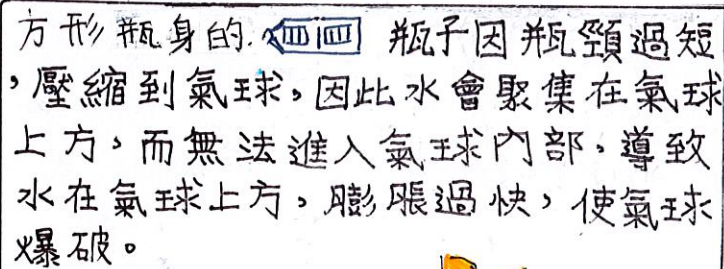 方形瓶身的. 瓶子因瓶頸過短
，壓縮到氣球，因此水會聚集在氣球
上方，而無法進入氣球內部，導致
水在氣球上方，膨脹過快，使氣球
爆破。